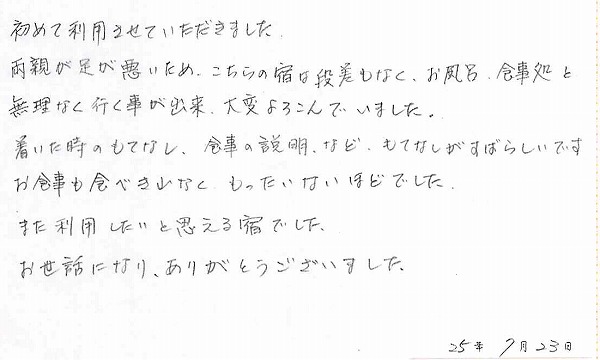 初めて利用させていただきました.
両親が足が悪いため、こちらの宿は段差もなく、お風呂、食事処と
無理なく行く事が出来、大変よろこんでいました。
着いた時のもてなし、食事の説明、など、もてなしがすばらしいです
お食事も食べきれなく、もったいないほどでした.
また利用したいと思える宿でした、
お世話になり、ありがとうございました、
25年 7月23日